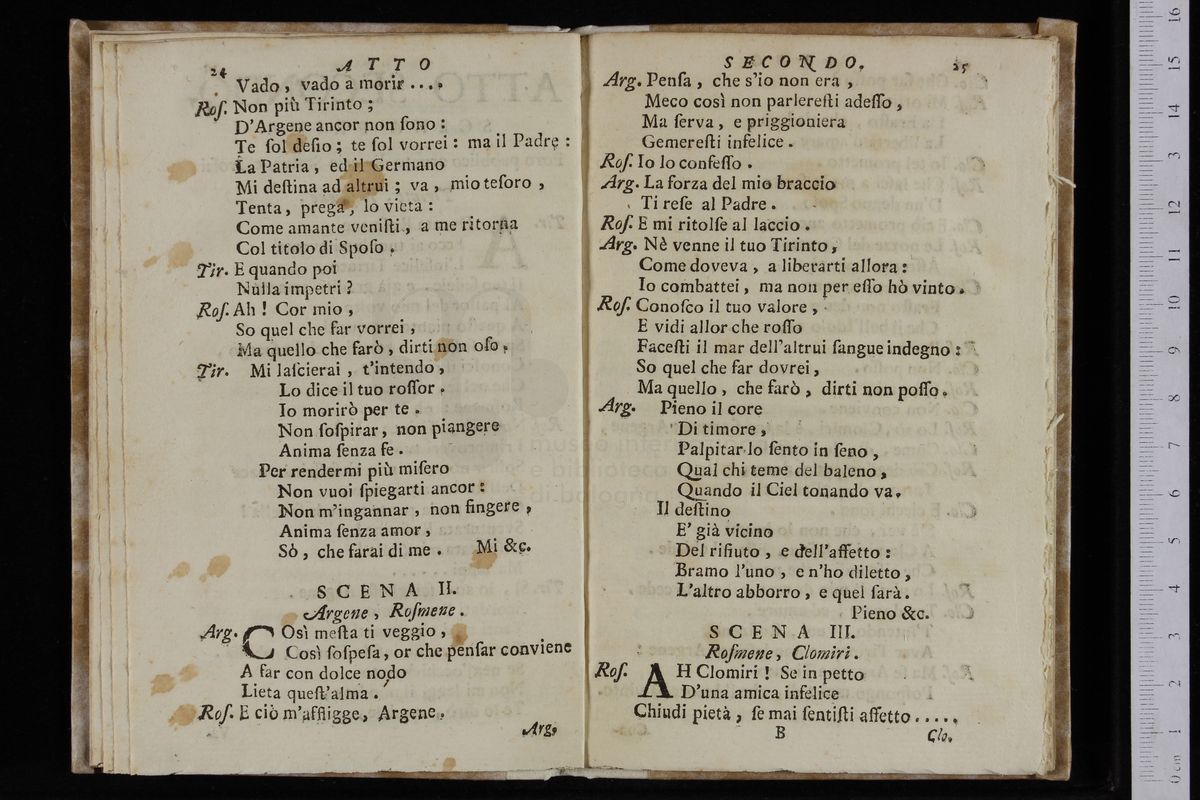 24 ATTO
Vado, vado a morir ....
Roſ. Non più Tirinto;
D'Argene ancor non ſono:
Te ſol deſio; te ſol vorrei: ma il Padre:
La Patria, ed il Germano
Mi deſtina ad altrui; va, mio teſoro,
Tenta, prega, lo vieta:
Come amante veniſti, a me ritorna
Col titolo di Spoſo.
Tir. E quando poi
Nulla impetri?
Roſ. Ah! Cor mio,
So quel che far vorrei,
Ma quello che farò, dirti non oſo.
Tir. Mi laſcierai, t'intendo,
Lo dice il tuo roſſor.
Io morirò per te.
Non ſoſpirar, non piangere
Anima ſenza fe.
Per rendermi più miſero
Non vuoi ſpiegarti ancor:
Non m'ingannar, non fingere,
Anima ſenza amor,
Sò, che farai di me. Mi &c.
SCENA II.
Argene, Roſmene.
Arg. COsì meſta ti veggio,
Così ſoſpeſa, or che penſar conviene
A far con dolce nodo
Lieta queſt'alma.
Roſ. E ciò m'affligge, Argene.
Arg.
SECONDO. 25
Arg. Penſa, che s'io non era,
Meco così non parlereſti adeſſo,
Ma ſerva, e priggioniera
Gemereſti infelice.
Roſ. Io lo confeſſo.
Arg. La forza del mio braccio
Ti reſe al Padre.
Roſ. E mi ritolſe al laccio.
Arg. Nè venne il tuo Tirinto,
Come doveva, a liberarti allora:
Io combattei, ma non per eſſo hò vinto.
Roſ. Conoſco il tuo valore,
E vidi allor che roſſo
Faceſti il mar dell'altrui ſangue indegno:
So quel che far dovrei,
Ma quello, che farò, dirti non poſſo.
Arg. Pieno il core
Di timore,
Palpitar lo ſento in ſeno,
Qual chi teme del baleno,
Quando il Ciel tonando va.
Il deſtino
E' già vicino
Del rifiuto, e dell'affetto:
Bramo l'uno, e n'ho diletto,
L'altro abborro, e quel ſarà.
Pieno &c.
SCENA III.
Roſmene, Clomiri.
Roſ. AH Clomiri! Se in petto
D'una amica infelice
Chiudi pietà, ſe mai ſentiſti affetto.....
B Clo.
museo inter
e biblioteca
di bologna
0 cm 1 2 3 4 5 6 7 8 9 10 11 12 13 14 15 16